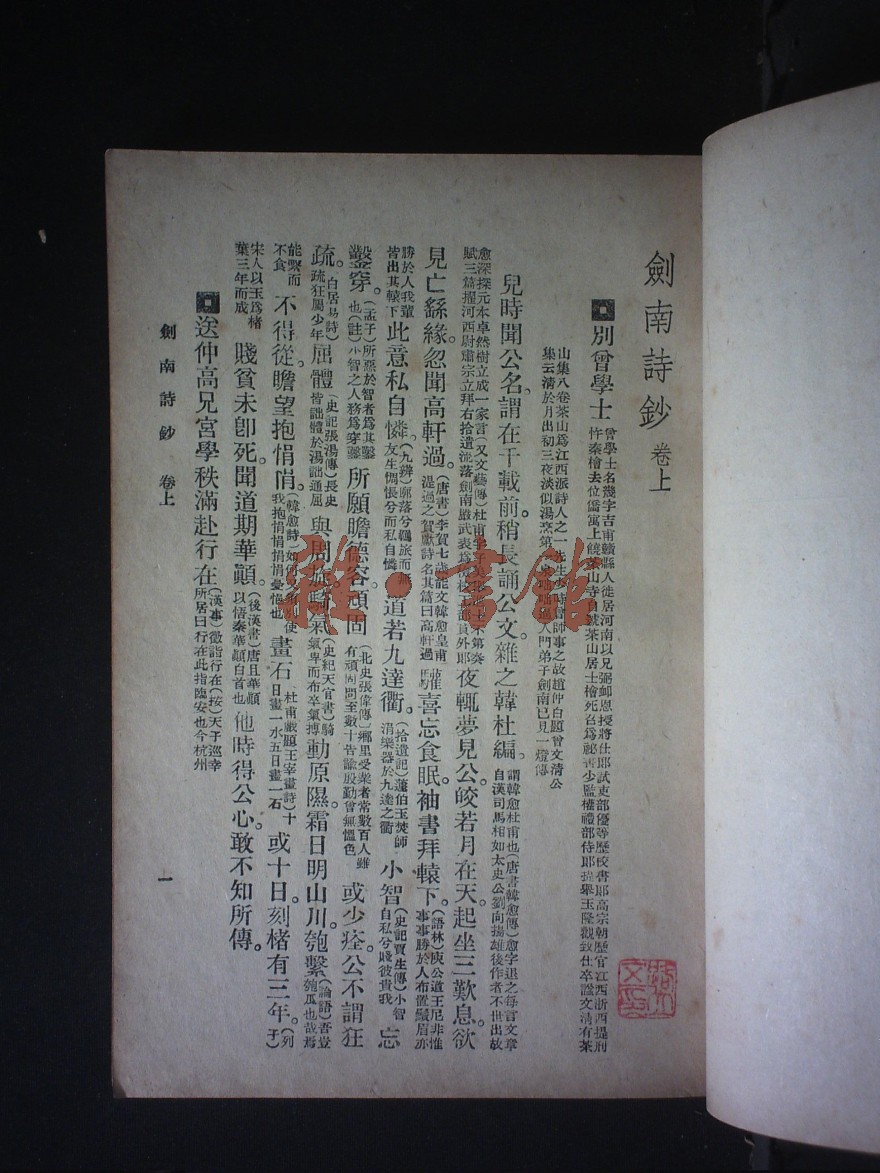 劍南詩鈔 卷上
別曾學士 曾學士名幾字吉甫贛縣人徙居河南以兄弼卹恩授將仕郎試吏部優等歷校書郎高宗朝歷官江西浙西提刑
忤秦檜去位僑寓上饒茶山寺自號茶山居士檜死召為祕書少監權禮部侍郎提舉玉隆觀致仕卒諡文清有茶
山集八卷茶山為江西派詩人之一先生少時嘗師事之故趙仲白題曾文清公
集云清於月出初三夜淡似湯烹第一泉 門弟子劍南已見一燈傳
兒時聞公名。謂在千載前。稍長誦公文。雜之韓杜編。 謂韓愈杜甫也(唐書韓愈傳)愈字退之每言文章
自漢司馬相如太史公劉向揚雄後作者不世出故
愈深探元本卓然樹立成一家言(又文藝傳)杜甫 不第奏
賦三篇擢河西尉肅宗立拜右拾遺流落劍南嚴武表為 員外郎 夜輒夢見公。皎若月在天。起坐三歎息。欲
見亡繇緣。忽聞高軒過。 (唐書)李賀七歲能文韓愈皇甫
湜過之賀歡詩名其篇曰高軒過 讙喜忘食眠。袖書拜轅下。 (語林)庾公道王尼非惟
事事勝於人布置鬚眉亦
勝於人我輩
皆出其轅下 此意私自憐。 (九辨)廓落兮羈旅而無
友生惆悵兮而私自憐 道若九達衢。 (拾遺記)蘧伯玉焚師
涓樂器於九達之衢 小智 (史記賈生傳)小智
自私兮賤彼貴我 忘
鑿穿。 (孟子)所惡於智者為其鑿
也(註)小智之人務為穿鑿 所願瞻德容。頑固 (北史張偉傳)鄉里受業者常數百人雖
有頑固問至數十皆諭殷勤曾無慍色 或少痊。公不謂狂
疏。 (白居易詩)
疏狂屬少年 屈體 (史記張湯傳)長史
皆詘體於湯詘通屈 與周旋。騎氣 (史紀天官書)騎
氣卑而布卒氣搏 動原隰。霜日明山川。匏繫 (論語)吾豈
匏瓜也哉焉
能繫而
不食 不得從。瞻望抱悁悁。 (韓愈詩)如何又 使
我抱悁悁悁悁憂悒也 畫石 杜甫戲題王宰畫詩)十
日畫一水五日畫一石 或十日。刻楮有三年。 (列子)
宋人以玉為楮
葉三年而成 賤貧未即死。聞道期華顛。 (後漢書)唐且華顛
以悟秦華顛白首也 他時得公心。敢不知所傳。
送仲高兄宮學秩滿赴行在 (漢事)徵詣行在(按)天子巡幸
所居曰行在此指臨安也今杭州
劍南詩鈔 卷上 一
雜·書館